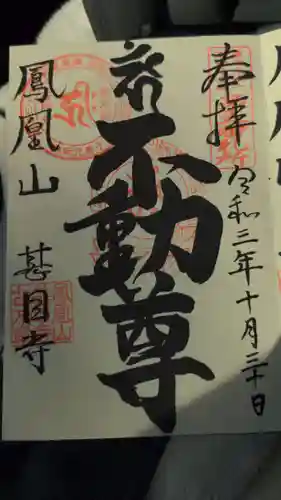 奉拝
令和三年十月三十日
不動尊
鳳凰山
甚目寺